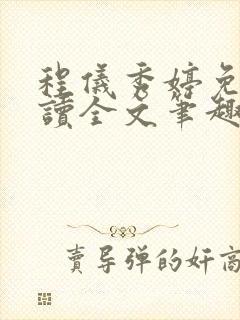 程儀秀婷免
讀全文筆趣
賣导弹的奸商